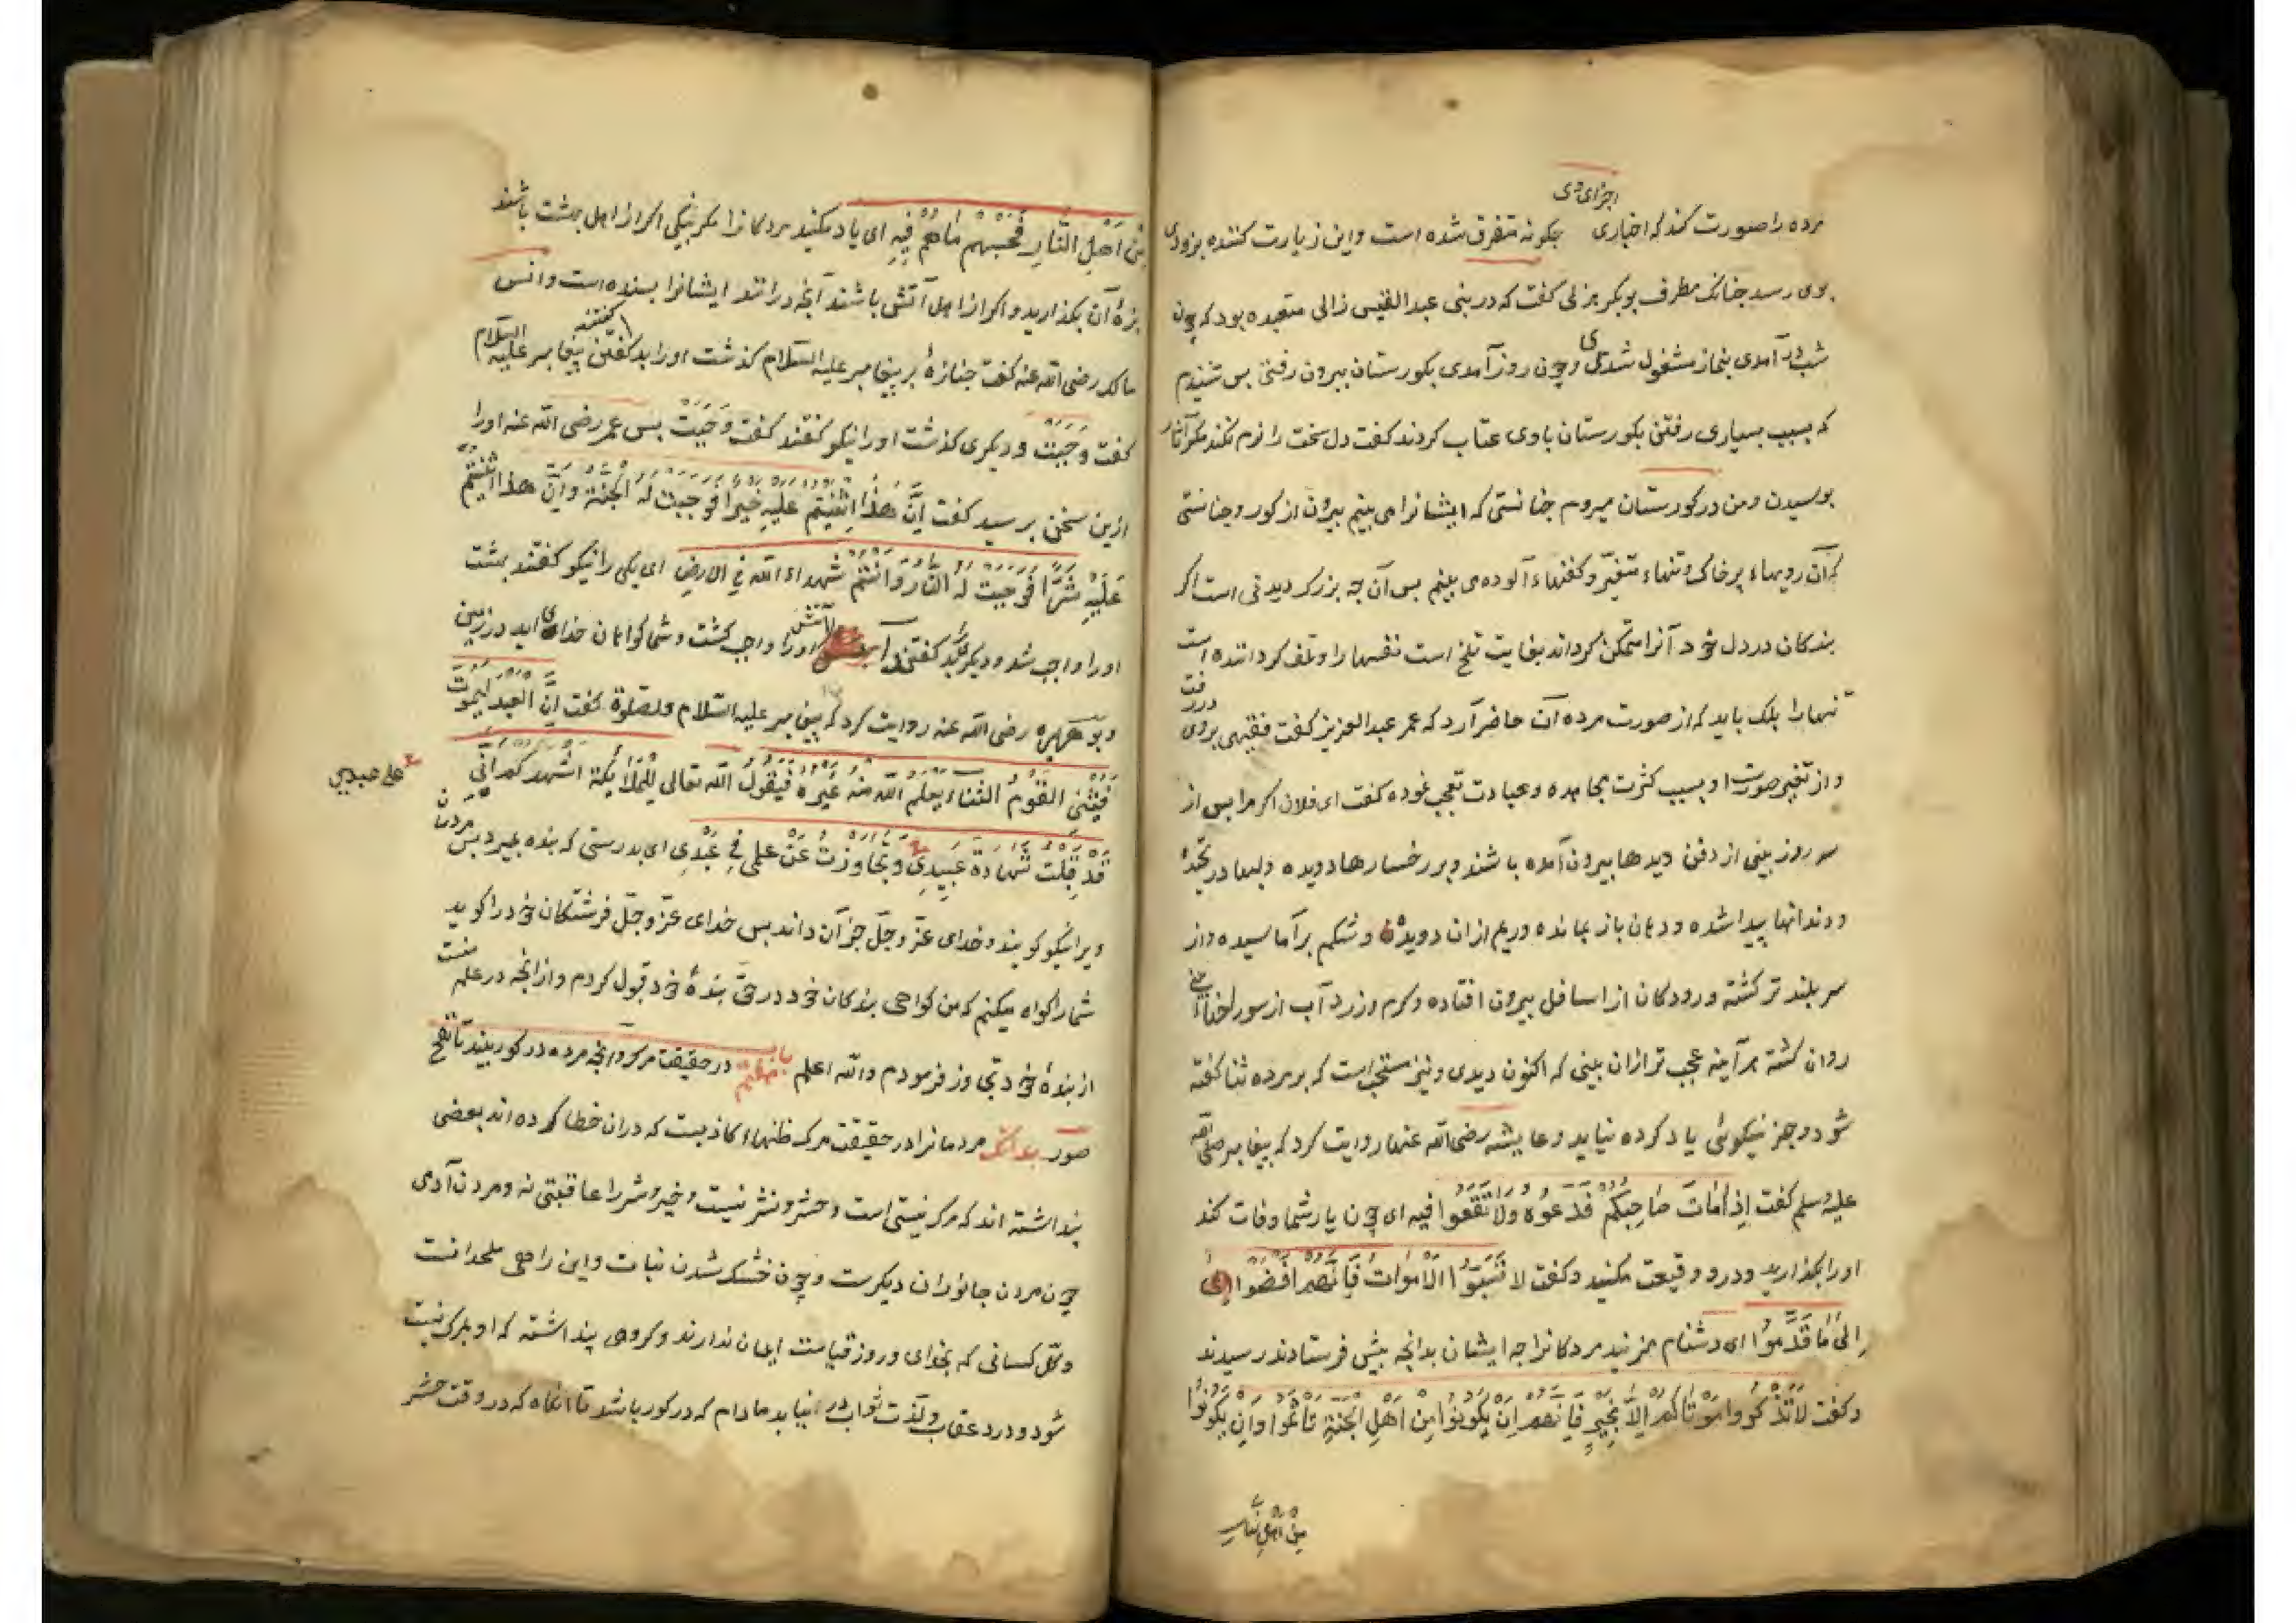 اجزای وی
مرده را صورت کند که اخباری چکونه متفرق شده است واین زیارت کننده بزودی
بوی رسد جنانک مطرف بوبکر هزلی کفت که در بنی عبد القیس زالی متعبده بود که چون
شب در آمدی بنماز مشغول شدی و چون روز آمدی بکورستان بیرون رفتی بس شنیدم
که بسبب بسیاری رفتن بکورستان باوی عتاب کردند کفت دل سخت را نرم نکند مکر آثار
بوسیدن ومن در کورستان میروم جنانستی که ایشانرا می بینم بیرون از کور وجنانستی
که آن رویهاء پر خاک وتنهاء متغیّر وکفنهاء آلوده می بینم بس آن چه بزرک دیدنی است اکر
بندکان در دل خود آنرا متمکن کرداند بغایت تلخ است نفسها را وتلف کرداننده است
تنها را بلک باید که از صورت مرده آن حاضر آرد که عمر عبد العزیز کفت فقیهی بروی در رفت
واز تغیر صورت او بسبب کثرت مجاهده وعبادت تعجب نموده کفت ای فلان اکر مرا بس از
سه روز بینی از دفن دیدها بیرون آمده باشند وبر رخسارها دویده ولبها در
ودندانها پیدا شده ودهان باز بمانده وریم ازان دویده وشکم بر آماسیده واز
سر بلند تر کشته ورودکان از اسافل بیرون افتاده وکرم وزرد آب از سوراخهاء بینی
روان کشته هر آینه عجب تر ازان بینی که اکنون دیدی ونیز مستحب است که بر مرده ثنا کفته
شود وجز نیکوئی یاد کرده نیاید وعایشه رضی الله عنها روایت کرد که پیغامبر صلی الله
علیه وسلم کفت اِذٰا مٰاتَ صٰاحِبُکُم فَدَعُوهُ وَلٰا تَقَعُوا فیه ای چون یار شما وفات کند
اورا بکذارید ودرو وقیعت مکنید وکفت لا تَسُبّوا الْاَمْواتَ فَاِنَّهُم اَفْضَوْا
اِلیٰ مٰا قَدَّمُوا ای دشنام مزنید مردکانرا چه ایشان بدانچه بیش فرستادند رسیدند
وکفت لاتَذْکُروا مَوْتٰاکُم اِلّا بِخَیرٍ فَاِنَّهُم اِنْ یَکُونُوا مِن اَهْلِ الْجَنّةِ تَاثَمُوا وَاِن یَکُونُوا
مِن اَهْلِ النّار
مِنْ اَهْلِ النّٰارِ فَحَسْبُهُم مٰا هُم فِیهِ ای یاد مکنید مردکانرا مکر بنیکی اکر از اهل بهشت باشند
بزهٔ آن بکذارید واکر از اهل آتش باشند آنچه در انند ایشانرا بسنده است وانس
مالک رضی الله عنه کفت جنازهٔ بر پیغامبر علیه السلام کذشت اورا بد کفتند پیغامبر علیه السلام
کفت وَجَبَتْ ودیکری کذشت اورا نیکو کفتند کفت وَجَبَتْ بس عمر رضی الله عنه اورا
ازین سخن پرسید کفت اِنَّ هٰذا اَثْنَیْتُم عَلَیهِ خَیراً فَوَجَبَت لَهُ الْجَنّةُ وَاِنَّ هٰذا اَثْنَیْتُم
عَلَیْهِ شَرّاً فَوَجَبَت لَهُ النّارُ وَاَنْتُم شُهَداءُ اللّه فی الارضِ ای یکی را نیکو کفتند بهشت
اورا واجب شد ودیکر را بد کفتند آتش اورا واجب کشت وشما کواهان خدای اید در زمین
وبوهریره رضی الله عنه روایت کرد که پیغامبر علیه السلام والصلوة کفت اِنَّ العَبدَ لَیَمُوتُ
فَیُثْنی القَوْمُ الثَّناءَ یَعْلَمُ اللّهُ مِنْهُ غَیْرَهُ فَیَقُولُ اللّه تعالی لِلْمَلٰائِکَةِ اُشْهِدُکُم اَنّی
علی عبیدی
قَدْ قَبِلْتُ شَهٰادَةَ عَبِیدِی وَتَجٰاوَزْتُ عَنْ عِلْمی فی عَبْدِی ای بدرستی که بنده بمیرد بس مردمان
ویرا نیکو کویند وخدای عزّ وجلّ جز آن داند بس خدای عزّ وجلّ فرشتکان خود را کوید
شمارا کواه میکنم که من کواهی بندکان خود در حقّ بندهٔ خود قبول کردم واز انچه در علم منست
از بندهٔ خود تجاوز فرمودم والله اعلم باب هفتم در حقیقت مرک وانچه مرده در کور بیند تا نفخ
صور بدانک مردمانرا در حقیقت مرک ظنهاء کاذبست که دران خطا کرده اند بعضی
پنداشته اند که مرک نیستی است وحشر ونشر نیست وخیر وشر را عاقبتی نه ومردن آدمی
چون مردن جانوران دیکرست وچون خشک شدن نبات واین رای ملحدانست
وکل کسانی که بخدای وروز قیامت ایمان ندارند وکروهی پنداشته که او بمرک نیست
شود ودرد عقاب ولذت ثواب در نیابد مادام که در کور باشد تا آنکاه که در وقت حشر